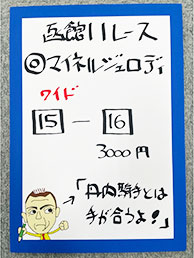 函館11レース
◎マイネルジェロディ
ワイド
15 － 16
3000円
→「丹内騎手とは
手が合うよ!」